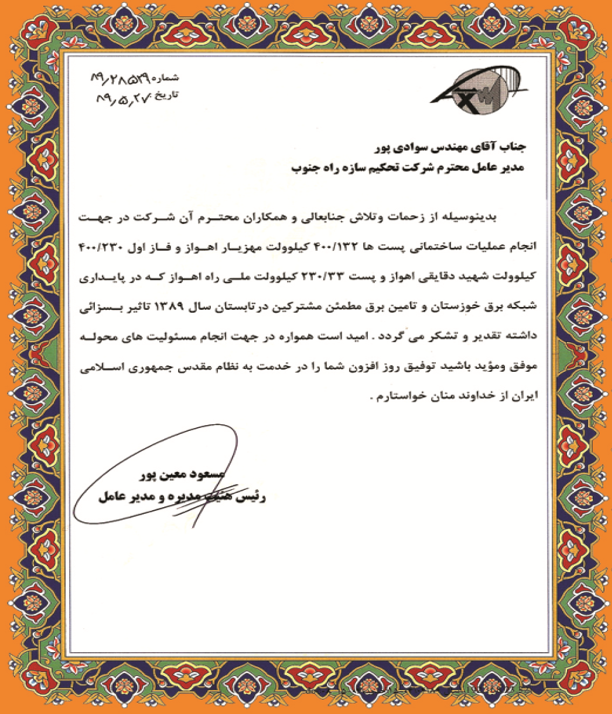 شماره ۸۹٫۲۸۵۲۹
تاریخ : ۸۹٫۵٫۲۷
جناب آقای مهندس سوادی پور
مدیر عامل محترم شرکت تحکیم سازه راه جنوب
بدینوسیله از زحمات وتلاش جنابعالی و همکاران محتـرم آن شـرکت در جهـت
انجام عملیات ساختمانی پست ها ۴۰۰/۱۳۲ کیلوولت مهزیـار اهـواز و فـاز اول ۴۰۰/۲۳۰
کیلوولت شهید دقایقی اهواز و پست ۲۳۰/۳۳ کیلوولت ملـی راه اهـواز کـه در پایـداری
شبکه برق خوزستان و تامین برق مطمئن مشترکین درتابستان سال ۱۳۸۹ تاثیر بـسزائی
داشته تقدیر و تشکر می گردد . امید است همواره در جهت انجام مسئولیت های محولـه
موفق ومؤید باشید توفیق روز افزون شما را در خدمت به نظام مقدس جمهوری اسـلامی
ایران از خداوند منان خواستارم .
مسعود معین پور
رئیس هیئت مدیره و مدیر عامل